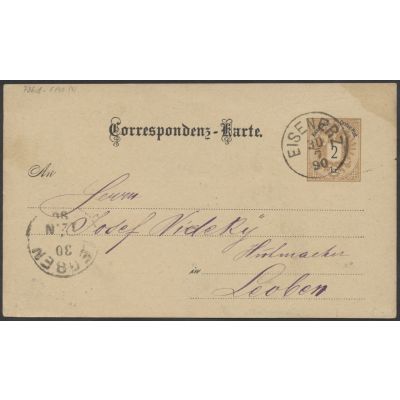 Correspondenz-Karte.
EISENERZ
30
7
90
2
An
Herrn
Josef Videky
Hutmacher
in
Leoben
LEOBEN
30